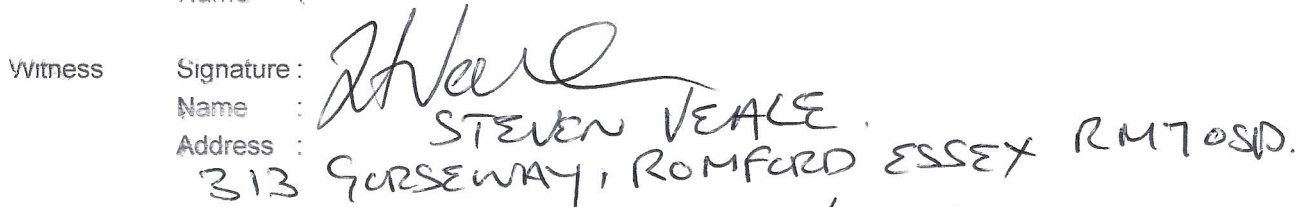 Witness Signature :
Name :
STEVEN VEALE.
Address :
313 GORSEWAY, ROMFORD ESSEX RM7 0SD.